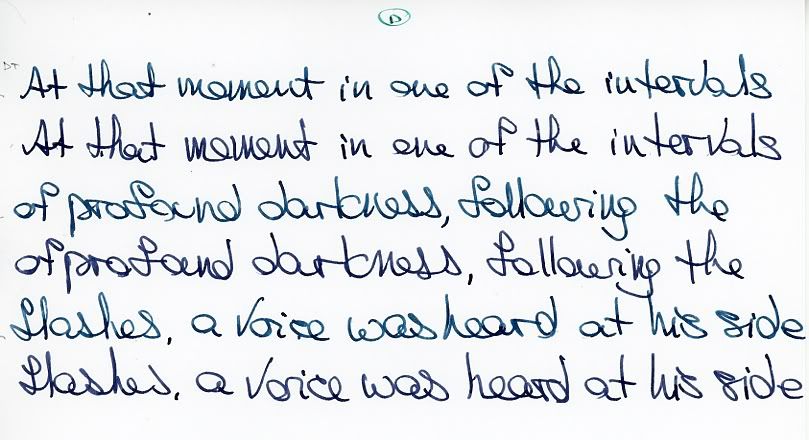 D
DT
At that moment in one of the intervals
At that moment in one of the intervals
of profound darkness, following the
of profound darkness, following the
flashes, a voice was heard at his side
flashes, a voice was heard at his side